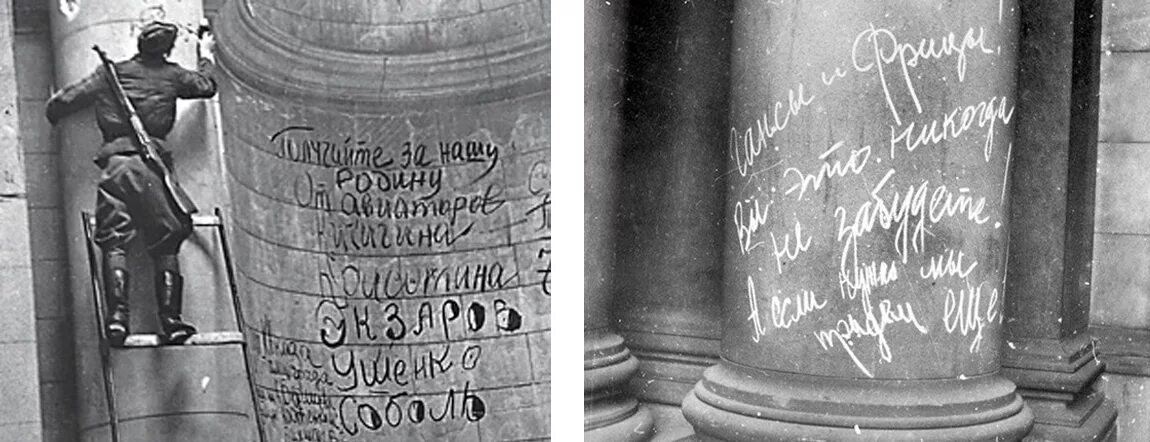 Получите за нашу
Родину
От авиаторов
Кисигина
Колсотина
Экзаров
Ушенко
Соболь
Гансы и Фрицы.
Вы это никогда
не забудете.
А если нужно мы
придем еще.